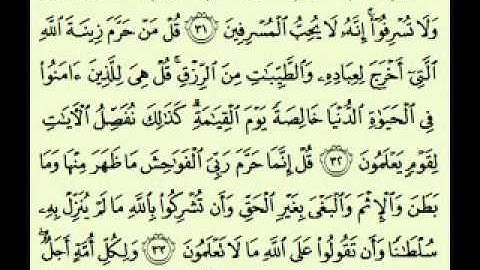 وَلَا تُسْرِفُوٓا۟ ۚ إِنَّهُۥ لَا يُحِبُّ ٱلْمُسْرِفِينَ ٣١ قُلْ مَنْ حَرَّمَ زِينَةَ ٱللَّهِ
ٱلَّتِىٓ أَخْرَجَ لِعِبَادِهِۦ وَٱلطَّيِّبَـٰتِ مِنَ ٱلرِّزْقِ ۚ قُلْ هِىَ لِلَّذِينَ ءَامَنُوا۟
فِى ٱلْحَيَوٰةِ ٱلدُّنْيَا خَالِصَةً يَوْمَ ٱلْقِيَـٰمَةِ ۗ كَذَٰلِكَ نُفَصِّلُ ٱلْـَٔايَـٰتِ
لِقَوْمٍ يَعْلَمُونَ ٣٢ قُلْ إِنَّمَا حَرَّمَ رَبِّىَ ٱلْفَوَٰحِشَ مَا ظَهَرَ مِنْهَا وَمَا
بَطَنَ وَٱلْإِثْمَ وَٱلْبَغْىَ بِغَيْرِ ٱلْحَقِّ وَأَن تُشْرِكُوا۟ بِٱللَّهِ مَا لَمْ يُنَزِّلْ بِهِۦ
سُلْطَـٰنًا وَأَن تَقُولُوا۟ عَلَى ٱللَّهِ مَا لَا تَعْلَمُونَ ٣٣ وَلِكُلِّ أُمَّةٍ أَجَلٌ ۖ